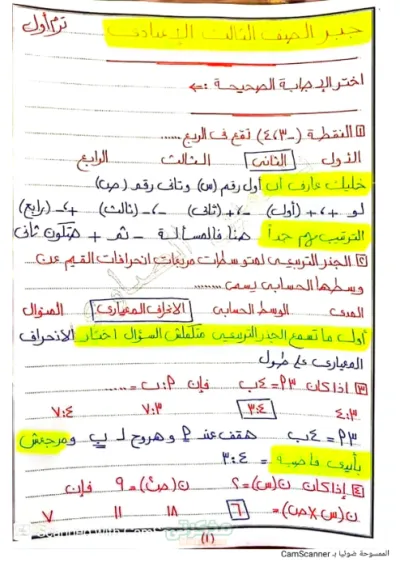 جبر الصف الثالث الإعدادى ترم أول
اختر الإجابة الصحيحة :←
١ النقطة (-٣، ٤) تقع فى الربع .....
الأول الثانى الثالث الرابع
خليك عارف ان أول رقم (س) وثانى رقم (ص)
لو +،+ (أول) -،+ (ثانى) -،- (ثالث) +،- (رابع)
الترتيب مهم جداً هنا فالمسألة - ثم + هتكون ثانى
٢ الجذر التربيعى لمتوسطات مربعات انحرافات القيم عن
وسطها الحسابى يسمى ......
المدى الوسط الحسابى الانحراف المعيارى المنوال
أول ما تسمع الجذر التربيعى متكملش السؤال اختار الانحراف
المعيارى على طول
٣ اذا كان ٣P = ٤ب فإن P : ب = .....
٤:٣ ٣:٤ ٧:٣ ٧:٤
٣P = ٤ب هقف عند P وهروح لـ ب ومرجعش
P تانى فاهمه = ٣:٤
٤ إذا كان ن(س) = ٢ ن(ص٢) = ٩ فإن
ن(س × ص) = ٦ ١٨ ١١ ٧
(١)
Scanned with CamScanner
الممسوحة ضوئيا بـ CamScanner